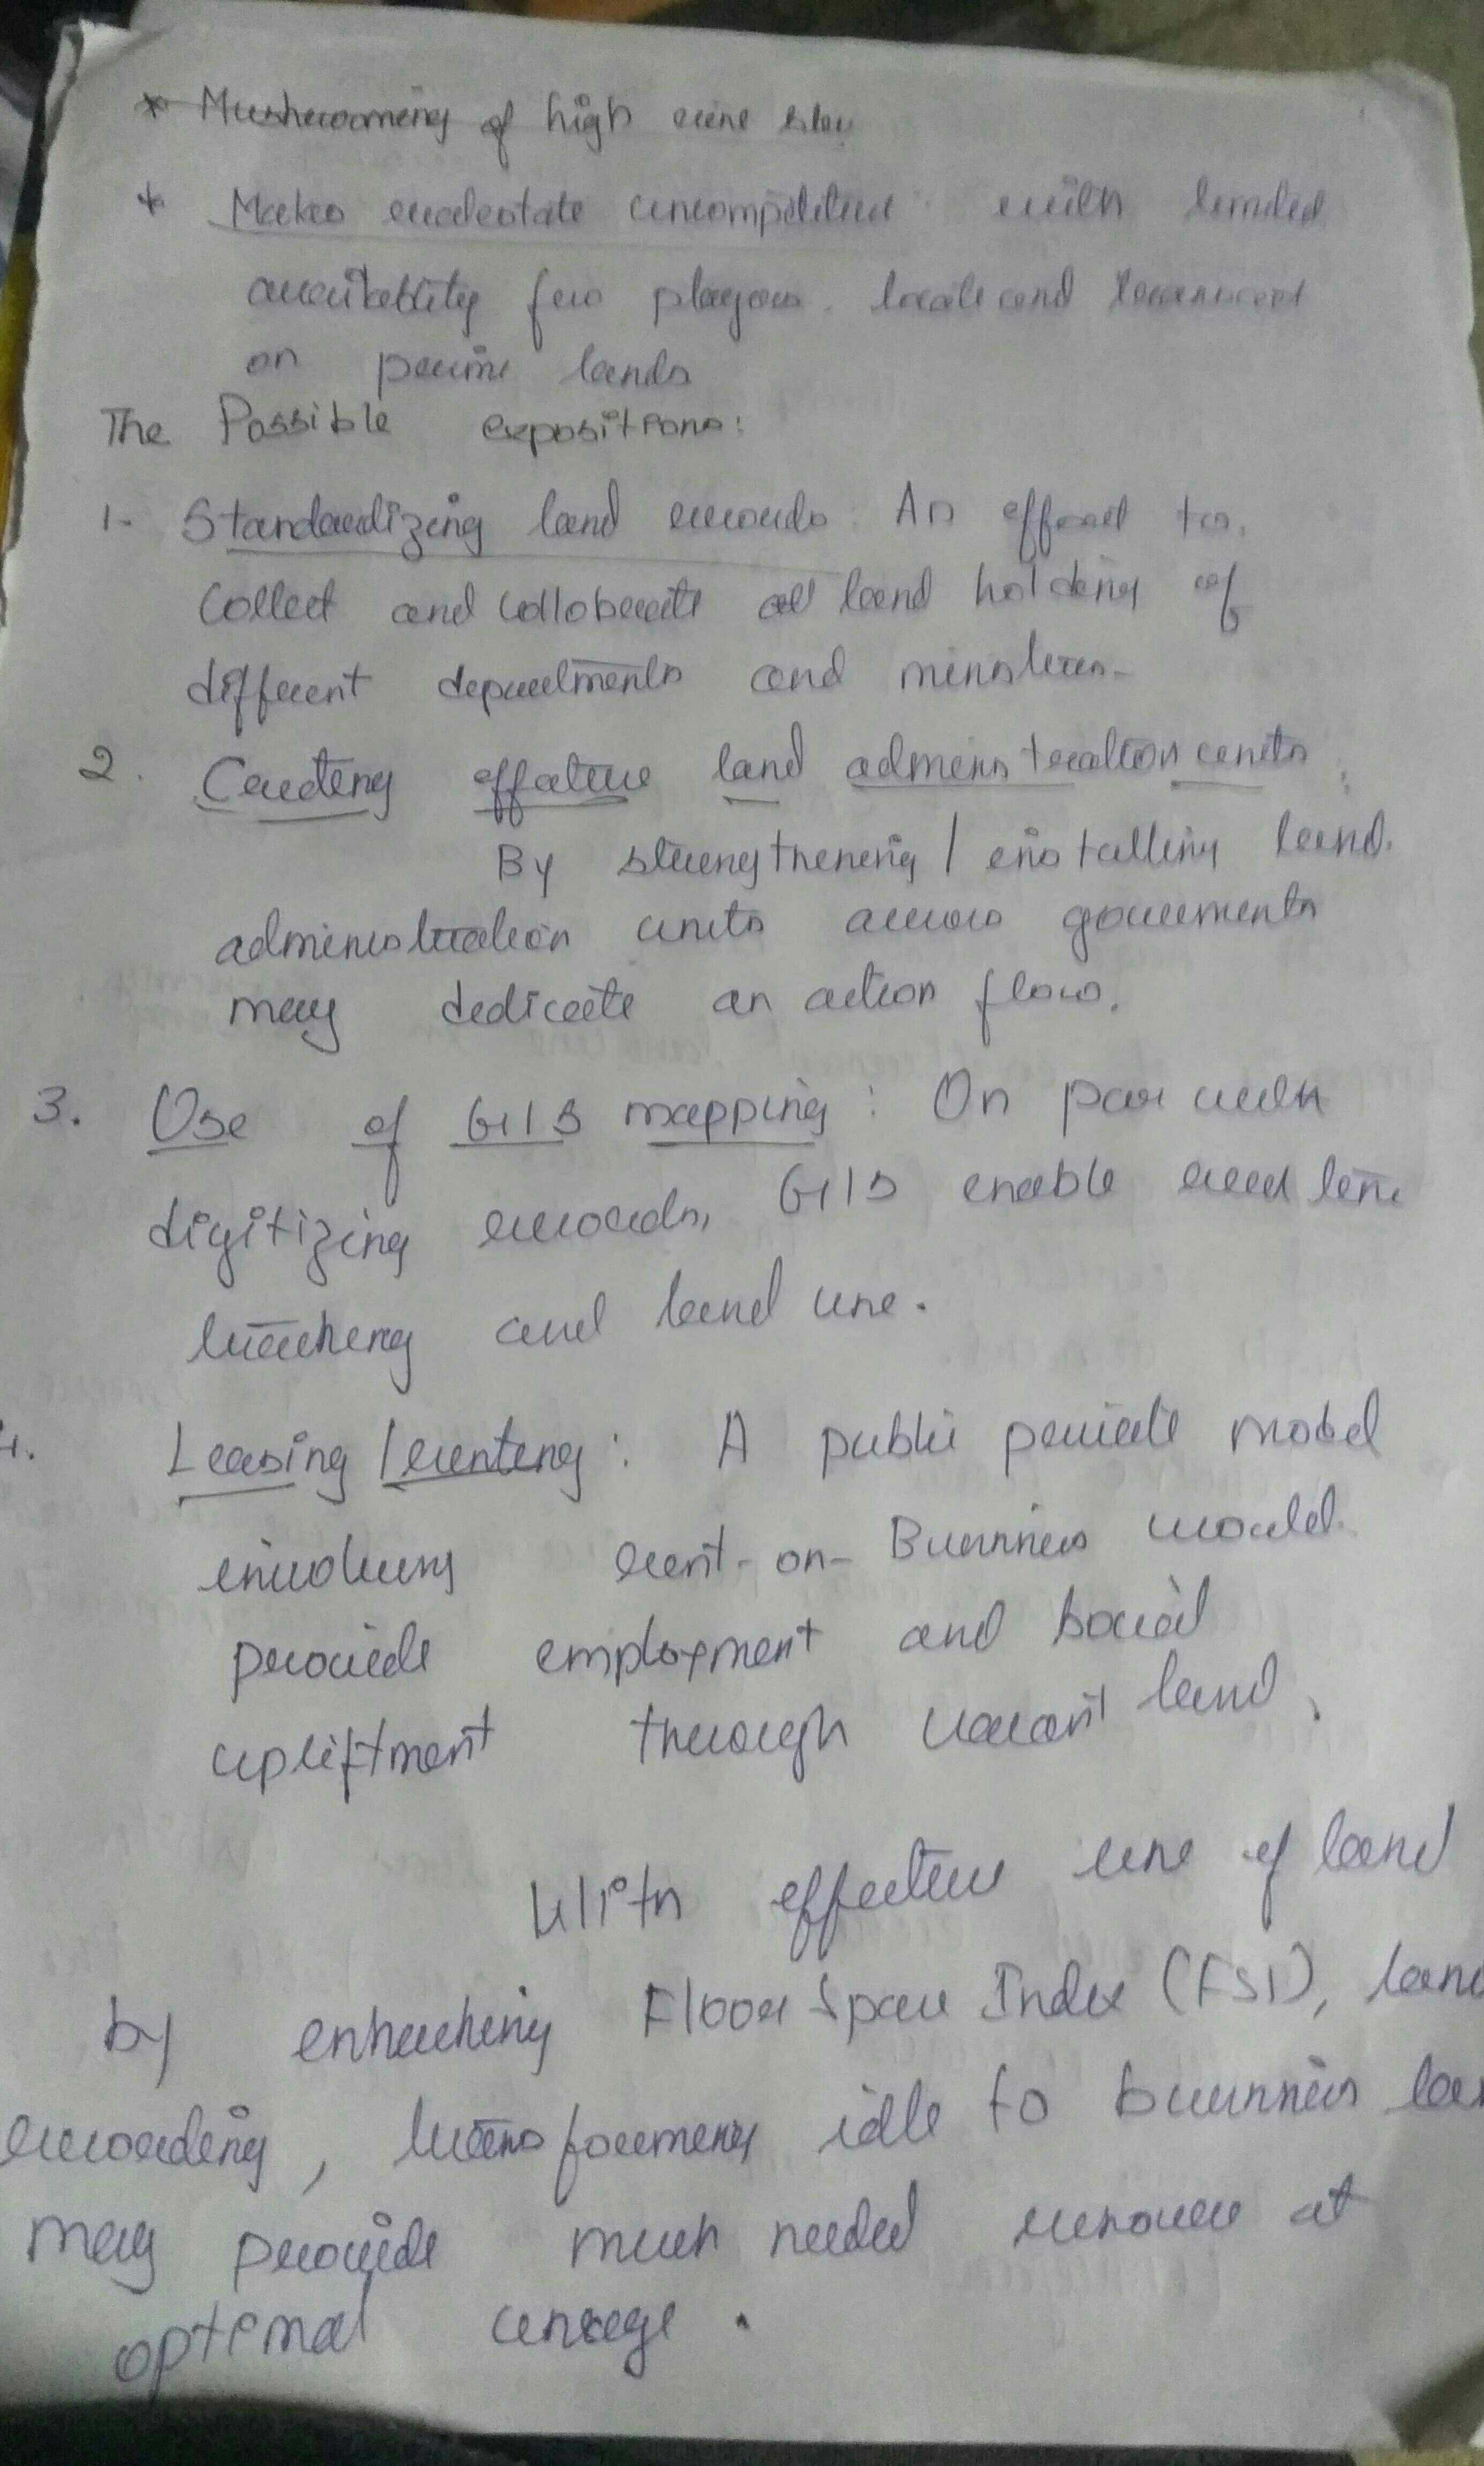 * Mushrooming of high rise
* Makes realestate uncompetitive with limited
availability few players. locate and
on prime lands
The Possible expositions:
1. Standardizing land records : An effort to
Collect and colloborate all land holding of
different departments and ministries.
2. Creating effective land administration units :
By strengthening / installing land
administration units across governments
may dedicate an action flow.
3. Use of GIS mapping : On par with
digitizing records, GIS enable real time
tracking and land use.
4. Leasing / renting : A public private model
involving rent-on-Business would
provide employment and social
upliftment through vacant land.
With effective use of land
by enhancing Floor Space Index (FSI), land
recording, transforming idle to business
may provide much needed resource at
optimal usage.